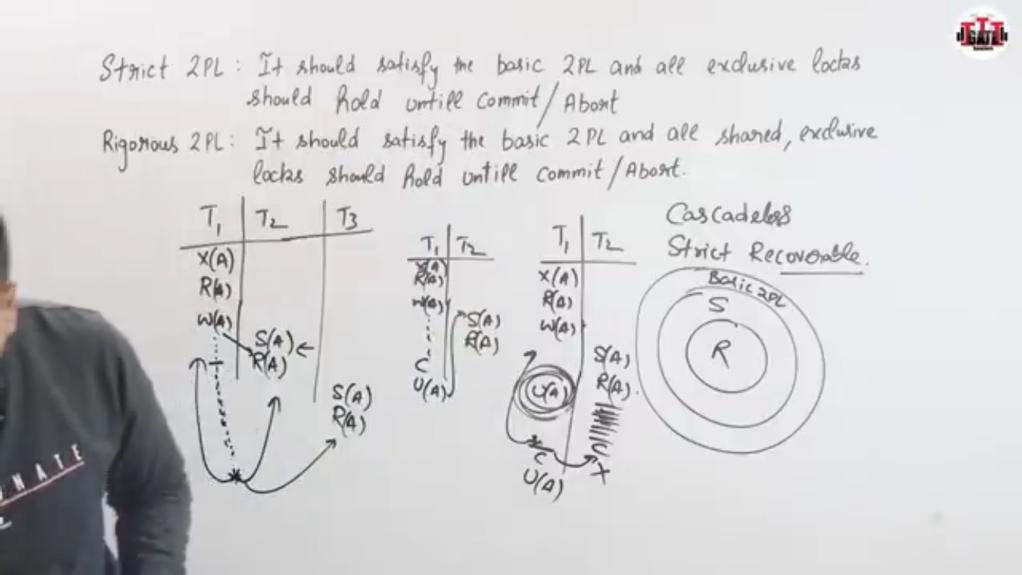 Strict 2PL: It should satisfy the basic 2PL and all exclusive locks
should hold untill Commit/Abort
Rigorous 2PL: It should satisfy the basic 2PL and all shared, exclusive
locks should hold untill Commit/Abort.
T1 T2 T3
X(A)
R(A)
W(A)
S(A)
R(A)
S(A)
R(A)
T1 T2
X(A)
R(A)
W(A)
S(A)
R(A)
C
U(A)
T1 T2
X(A)
R(A)
W(A)
S(A)
R(A)
U(A)
C
C
U(A)
X
Cascadeless
Strict Recoverable.
Basic 2PL
S
R
GATE
NATE